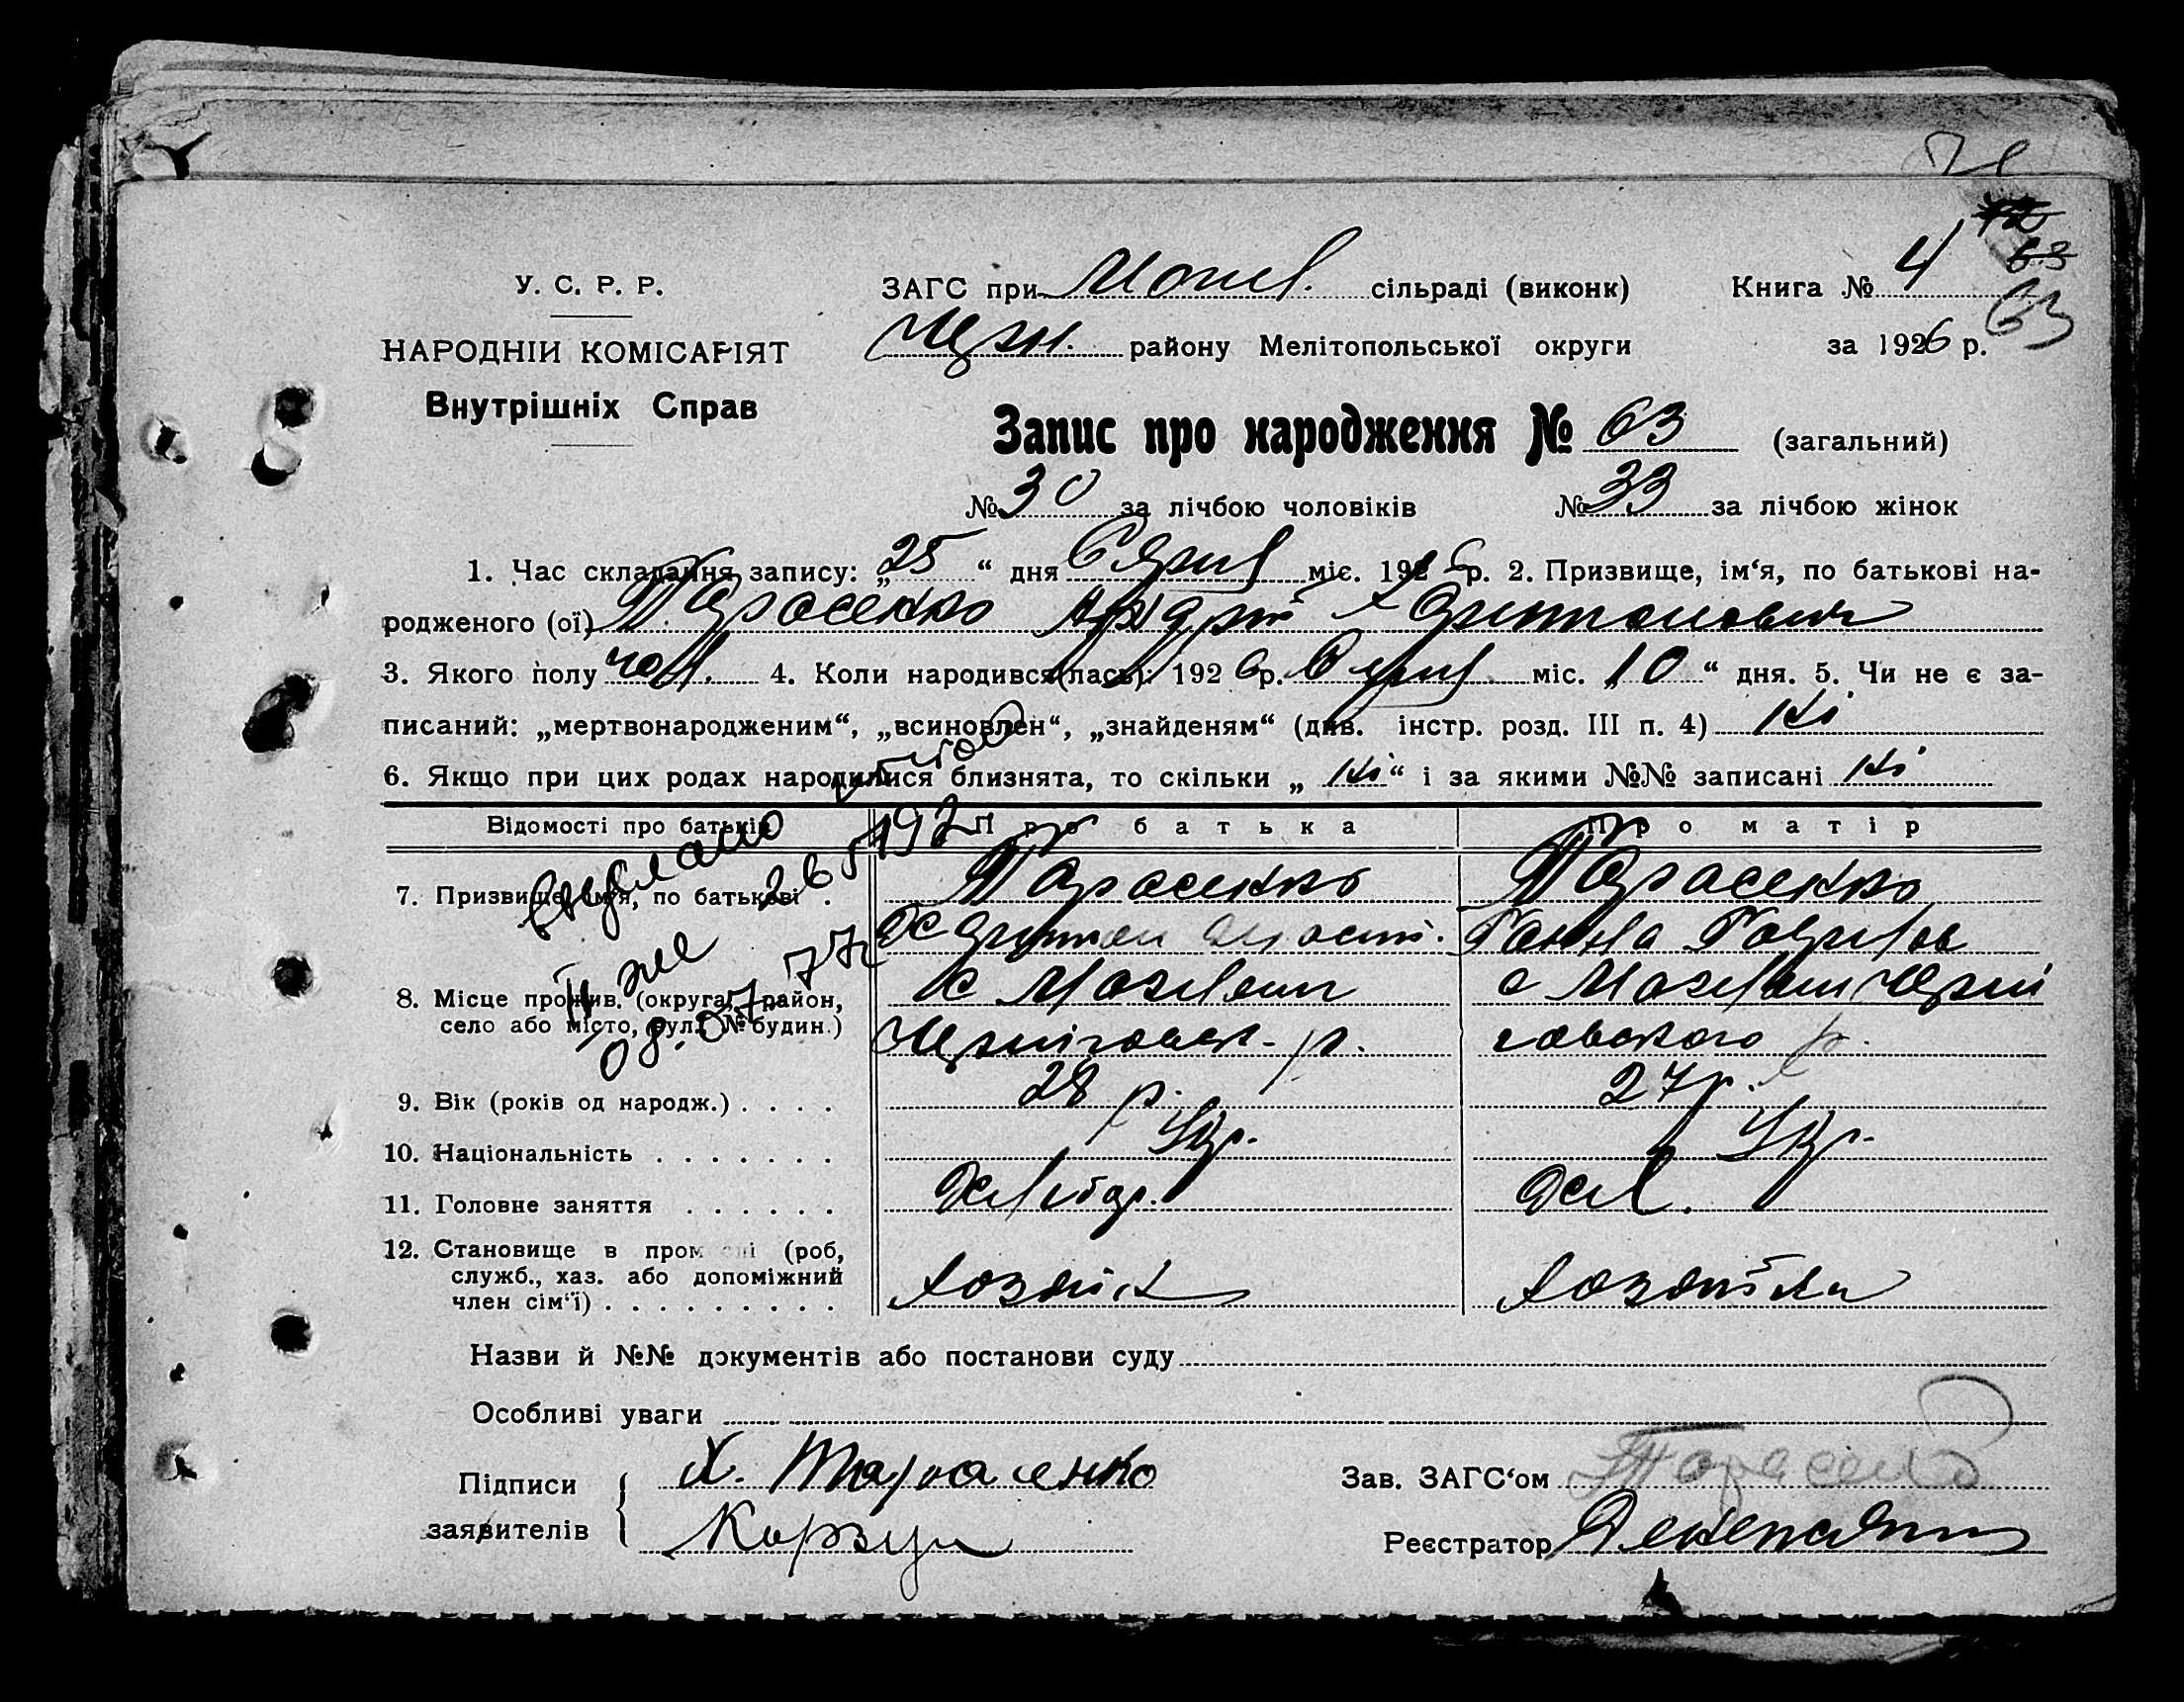 У. С. Р. Р.
НАРОДНІЙ КОМІСАРІЯТ
Внутрішніх Справ
ЗАГС при Могил. сільраді (виконк)
Черн. району Мелітопольської округи
Книга № 4
за 1926 р.
63
63
Запис про народження № 63 (загальний)
№ 30 за лічбою чоловіків № 33 за лічбою жінок
1. Час складання запису: „25“ дня Серпня міс. 1926 р. 2. Призвище, ім‘я, по батькові на-
родженого (ої) Тарасенко Андрій Харитонович
3. Якого полу чол. 4. Коли народився(лась): 1926 р. Серпня міс. „10“ дня. 5. Чи не є за-
писаний: „мертвонародженим“, „всиновлен“, „знайденям“ (див. інстр. розд. III п. 4) Ні
6. Якщо при цих родах народилися близнята, то скільки „Ні“ і за якими №№ записані Ні
Відомості про батьків Про батька Про матір
7. Призвище, ім‘я, по батькові . Тарасенко Тарасенко
Харитон Ганна Гаврилов
8. Місце прожив. (округа, район, с Могиляни с Могиляни Черні
село або місто, вул. № будин.) Черніговск. р. говского р.
9. Вік (років од народж.) . . . . 28 р. 27 р.
10. Національність . . . . . . . Укр. Укр.
11. Головне заняття . . . . . . Хлібор. Хл.
12. Становище в промислі (роб, служб., хаз. або допоміжний член сім‘ї) . . . . . . . . . Хозяїн Хозяйка
08.07.77г
Назви й №№ документів або постанови суду
Особливі уваги
Підписи заявителів { Х. Тарасенко
Корзун
Зав. ЗАГС‘ом Тарасенко
Реєстратор